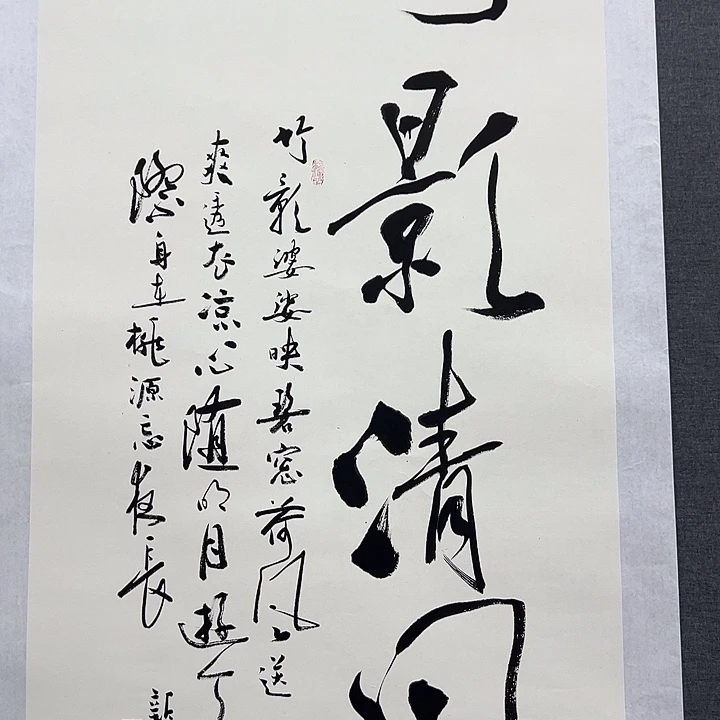 影清
竹影婆娑映碧窓荷风送
爽透衣凉心随明月遊
隐身在桃源忘夜长